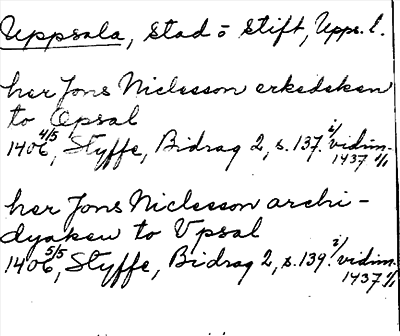 Uppsala, stad o stift, Upps. l.
her Jons Niclesson erkedeken
to Opsal
1406 4/5, Styffe, Bidrag 2, s. 137. i/ vidim. 1437 11/1
her Jons Niclesson archi-
dyaken to Upsal
1406 5/5, Styffe, Bidrag 2, s. 139. i/ vidim. 1437